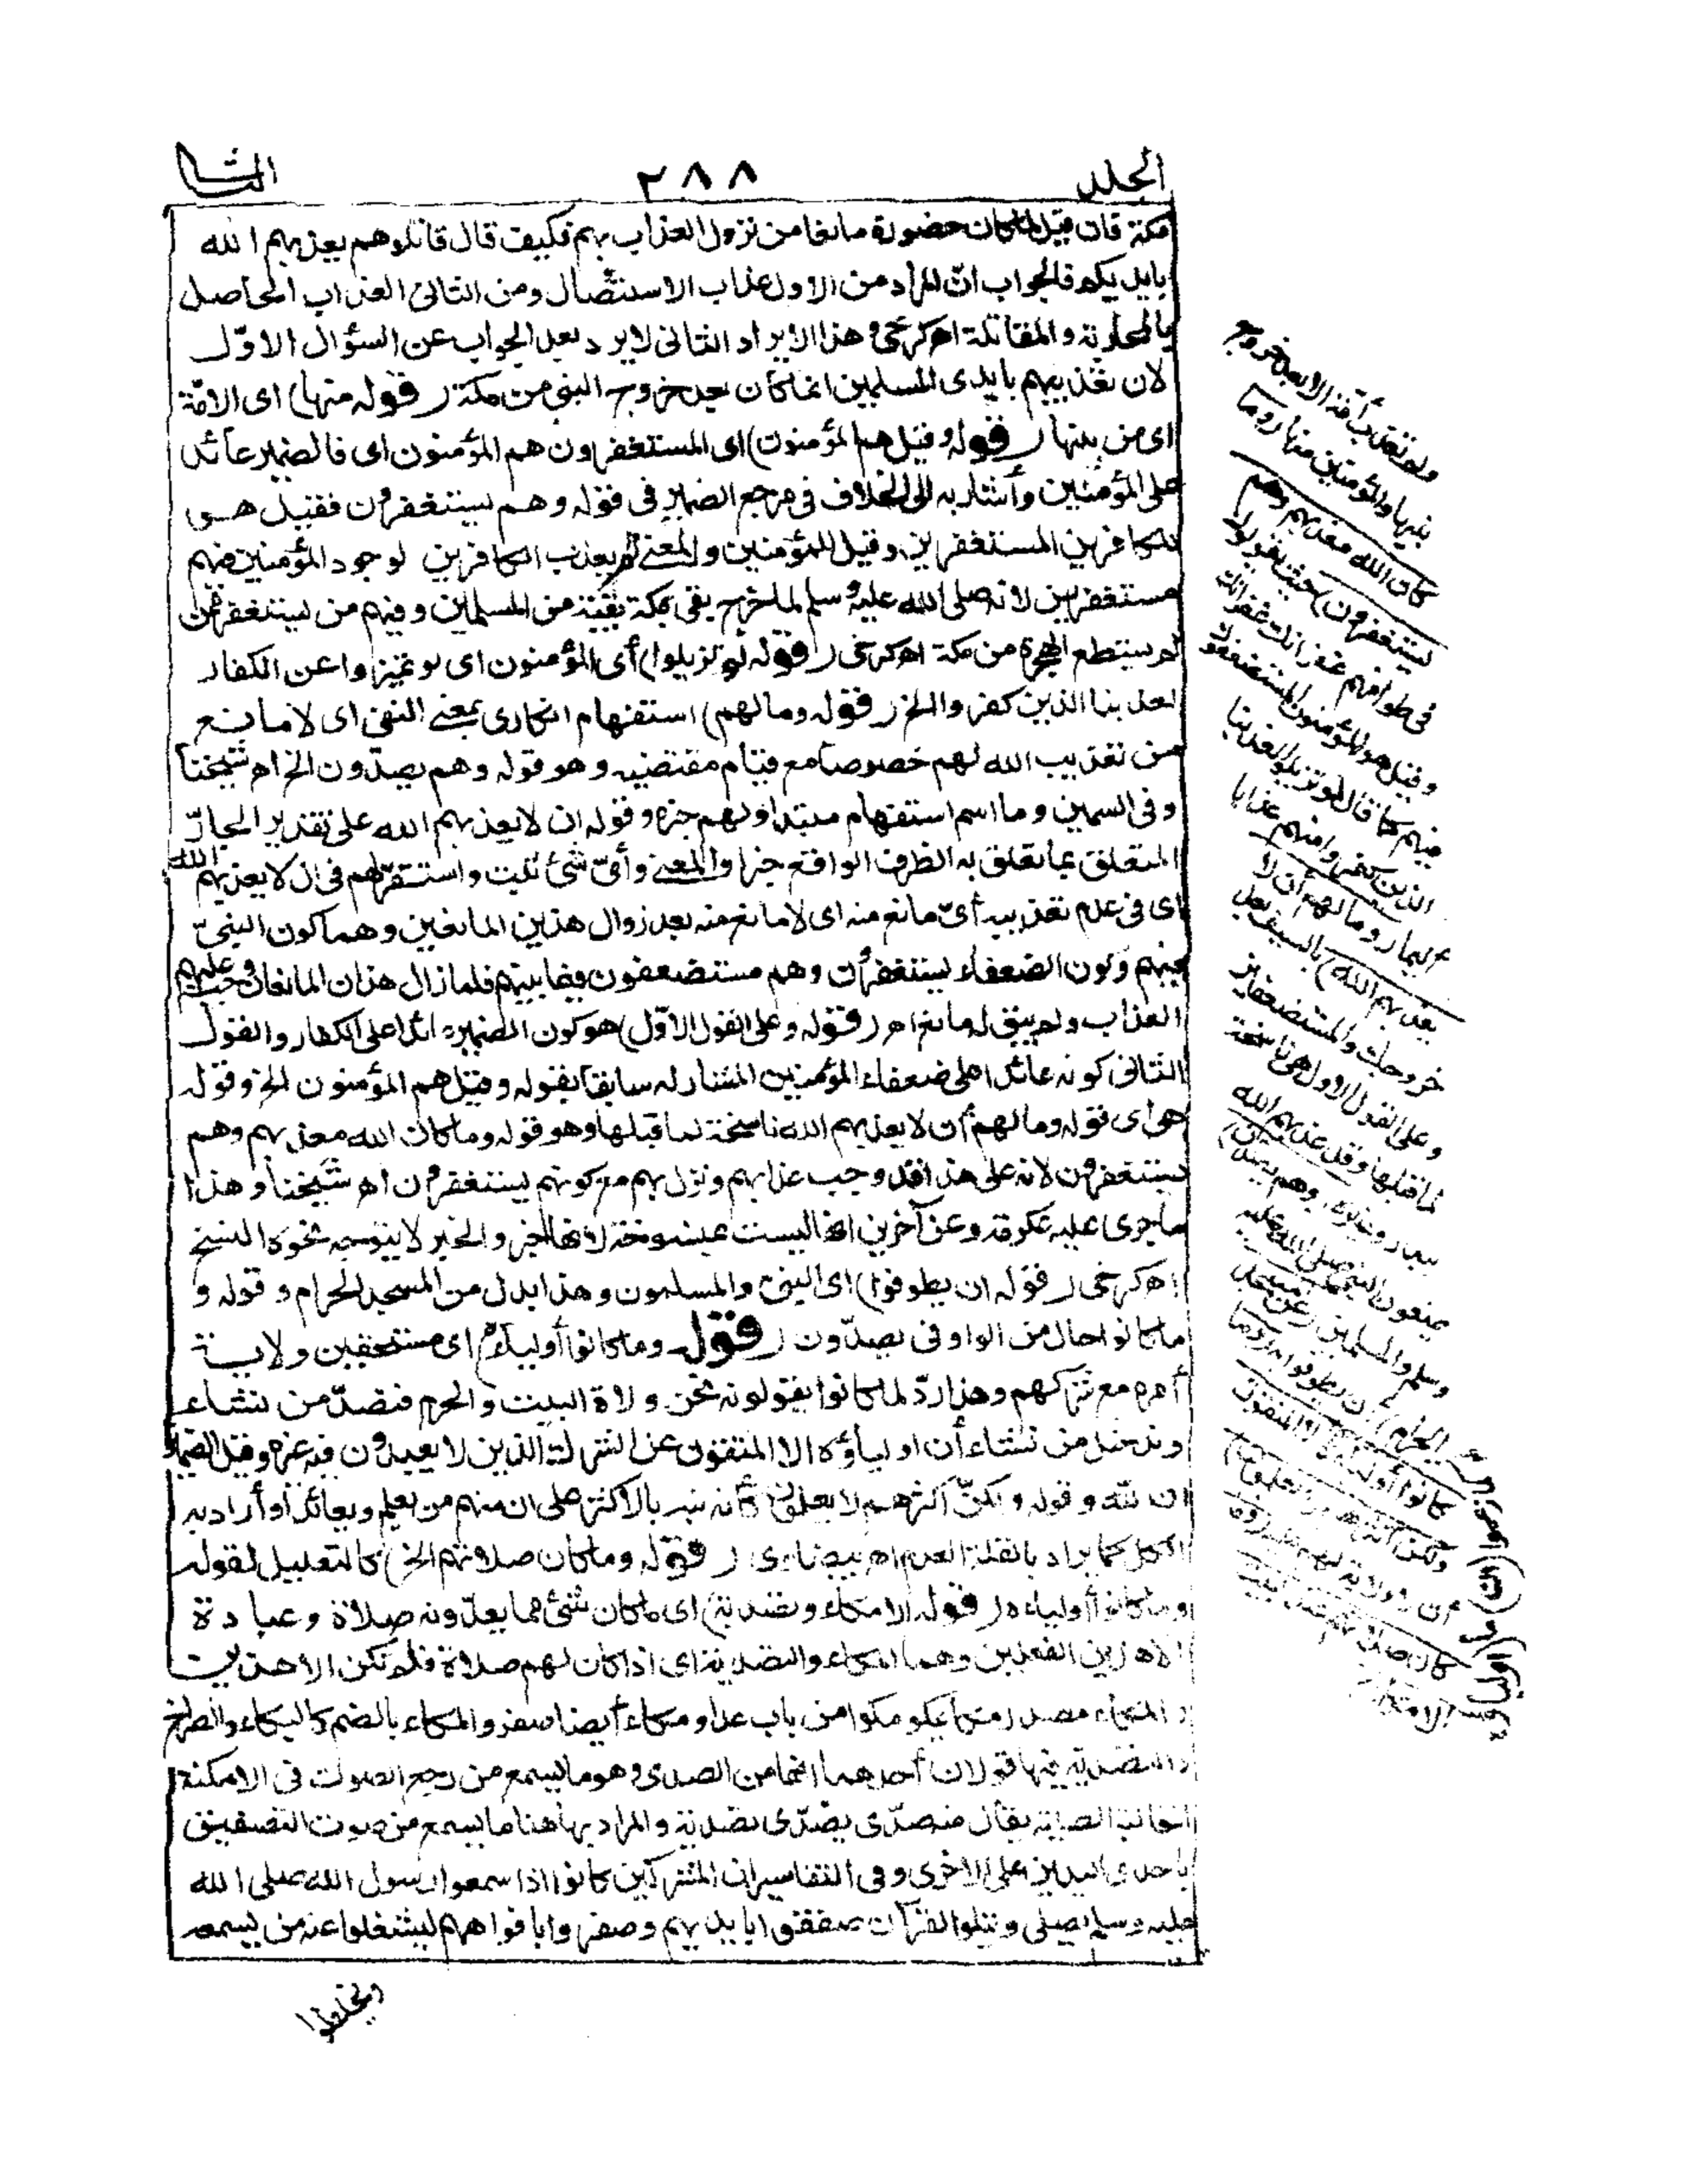 الجلد
٢٨٨
الثا
مكة فان قيل لما كان حضوره مانعا من نزول العذاب بهم فكيف قال قاتلوهم يعذبهم الله
بايديكم فالجواب انّ المراد من الاول عذاب الاستئصال ومن الثانى العذاب الحاصل
بالمحاربة والمقاتلة اهـ كرخى وهذا الايراد الثانى لا يرد بعد الجواب عن السؤال الاوّل
لان تعذيبهم بايدى المسلمين انما كان بعد خروج النبى من مكة (قوله منها) اى الامّة
اى من بينها (قوله وقيل هم المؤمنون) اى المستغفرون هم المؤمنون اى فالضمير عائد
على المؤمنين وأشار به الى الخلاف فى مرجع الضمير فى قوله وهم يستغفرون فقيل هى
للكافرين المستغفرين وقيل للمؤمنين والمعنى لم يعذب الكافرين لوجود المؤمنين فيهم
مستغفرين لانه صلى الله عليه وسلم لما خرج بقى بمكة بقية من المسلمين وفيهم من يستغفر ممن
لم يستطع الهجرة من مكة اهـ كرخى (قوله لو تزيلوا) أى المؤمنون اى لو تميزوا عن الكفار
لعذبنا الذين كفروا الخ (قوله وما لهم) استفهام انكارى بمعنى النفى اى لا مانع
من تعذيب الله لهم خصوصا مع قيام مقتضيه وهو قوله وهم يصدّون الخ اهـ شيخنا
وفى السمين وما اسم استفهام مبتدا ولهم خبره وقوله ان لا يعذبهم الله على تقدير الجارّ
المتعلق بما تعلق به الظرف الواقع خبرا والمعنى وأىّ شئ ثبت واستقرّ لهم فى ان لا يعذبهم الله
اى فى عدم تعذيبه أىّ مانع منه اى لا مانع منه بعد زوال هذين المانعين وهما كون النبىّ
فيهم وكون الضعفاء يستغفرون وهم مستضعفون فيما بينهم فلما زال هذان المانعان وجب عليهم
العذاب ولم يبق له مانع اهـ (قوله وعلى القول الاوّل) هو كون الضمير عائدا على الكفار والقول
الثانى كونه عائدا على ضعفاء المؤمنين المشار له سابقا بقوله وقيل هم المؤمنون الخ وقوله
هى اى قوله وما لهم أن لا يعذبهم الله ناسخة لما قبلها وهو قوله وما كان الله معذبهم وهم
يستغفرون لانه على هذا قد وجب عذابهم ونزل بهم مع كونهم يستغفرون اهـ شيخنا وهذا
ما جرى عليه عكرمة وعن آخرين انها ليست منسوخة لانها خبر والخبر لا يتوجه نحوه النسخ
اهـ كرخى (قوله ان يطوفوا) اى النبى والمسلمون وهذا بدل من المسجد الحرام وقوله و
ما كانوا حال من الواو فى يصدّون (قوله وما كانوا أولياءه) اى مستحقين ولاية
أمره مع شركهم وهذا ردّ لما كانوا يقولونه نحن ولاة البيت والحرم فنصدّ من نشاء
وندخل من نشاء أن اولياؤه الا المتقون عن الشرك الذين لا يعبدون فيه غيره وقيل الضميران
لله وقوله ولكنّ أكثرهم لا يعلمون كأنه نبه بالاكثر على ان منهم من يعلم ويعاند أو أراد به
الكل كما يراد بالقلة العدم اهـ بيضاوى (قوله وما كان صلاتهم الخ) كالتعليل لقوله
وما كانوا أولياءه (قوله الا مكاء وتصدية) اى ما كان شئ مما يعدّونه صلاة وعبادة
الا هذين الفعلين وهما المكاء والتصدية اى اذا كان لهم صلاة فلم تكن الا هذين
والمكاء مصدر مكا يمكو مكوا من باب عدا ومكاء أيضا صفر والمكاء بالضم كالبكاء والصراخ
والتصدية فيها قولان أحدهما انها من الصدى وهو ما يسمع من رجع الصوت فى الامكنة
الخالية الصلبة يقال منه صدّى يصدّى تصدية والمراد بها هنا ما يسمع من صوت التصفيق
باحدى اليدين على الاخرى وفى التفاسير ان المشركين كانوا اذا سمعوا رسول الله صلى الله
عليه وسلم يصلى ويتلو القرآن صفقوا بايديهم وصفروا بافواههم ليشغلوا عنه من يسمعه
ولم تعذب أمة الا بعد خروج
نبيها والمؤمنين منها (وما
كان الله معذبهم وهم
يستغفرون) حيث يقولون
فى طوافهم غفرانك غفرانك
وقيل هم المؤمنون المستضعفون
فيهم كما قال لو تزيلوا لعذبنا
الذين كفروا منهم عذابا
أليما (وما لهم أن لا
يعذبهم الله) بالسيف بعد
خروجك والمستضعفين
وعلى القول الاول هى ناسخة
لما قبلها وقد عذبهم الله
ببدر وغيره (وهم يصدون)
يمنعون النبى صلى الله عليه
وسلم والمسلمين (عن المسجد
الحرام) أن يطوفوا به (وما
كانوا أولياءه) (ان) ما (أولياؤه الا المتقون
ولكن أكثرهم لا يعلمون)
أن لا ولاية لهم عليه (وما
كان صلاتهم عند البيت
الا مكاء)